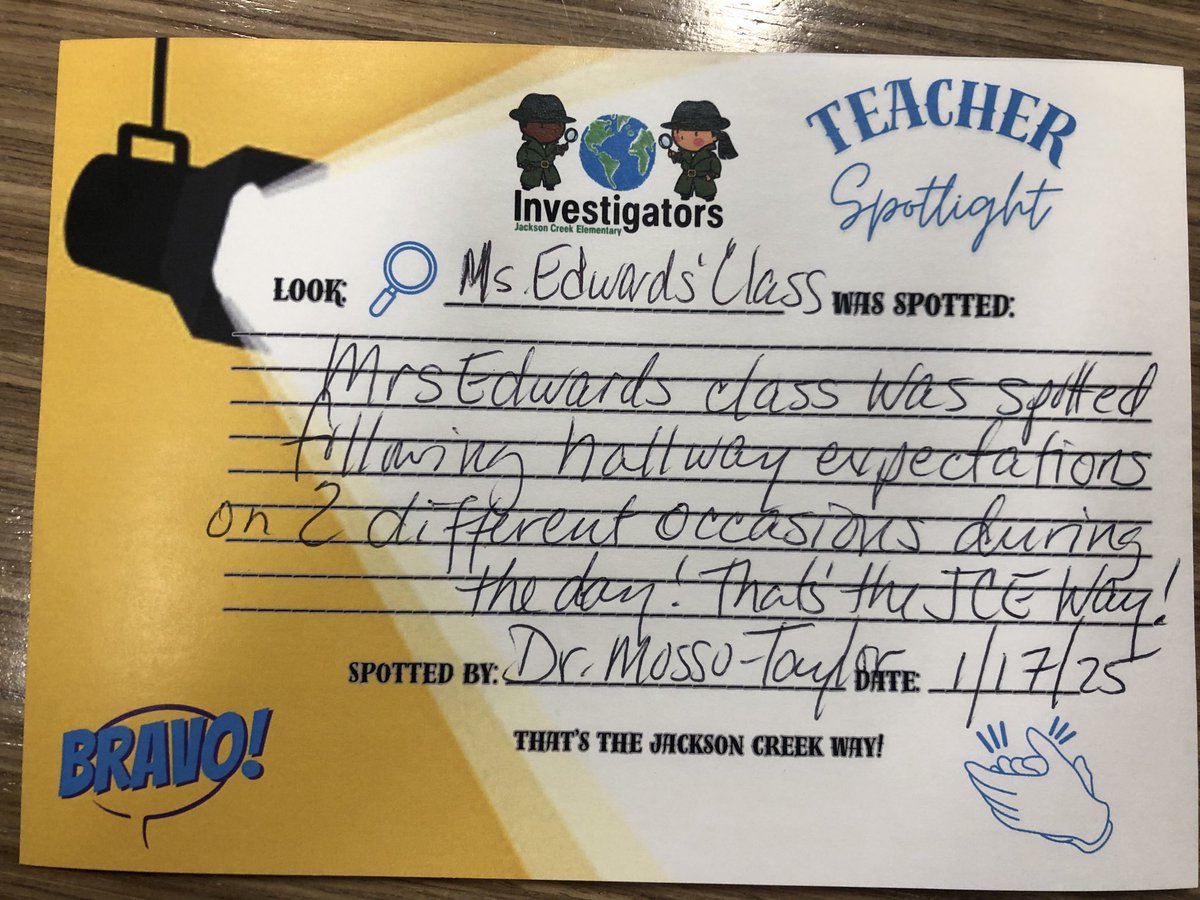 TEACHER
Spotlight
Investigators
Jackson Creek Elementary
LOOK: Ms. Edwards' Class WAS SPOTTED:
Mrs Edwards class was spotted
following hallway expectations
on 2 different occasions during
the day! That's the JCE Way!
SPOTTED BY: Dr. Mosso-Taylor DATE: 1/17/25
THAT'S THE JACKSON CREEK WAY!
BRAVO!